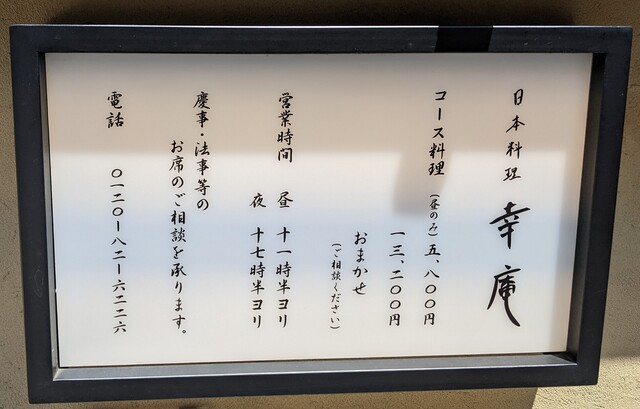 日本料理 幸庵
コース料理 (昼のみ) 五、八〇〇円
一三、二〇〇円
おまかせ
(ご相談ください)
営業時間 昼 十一時半ヨリ
夜 十七時半ヨリ
慶事・法事等の
お席のご相談を承ります。
電話 〇一二〇ー八二ー六二二六